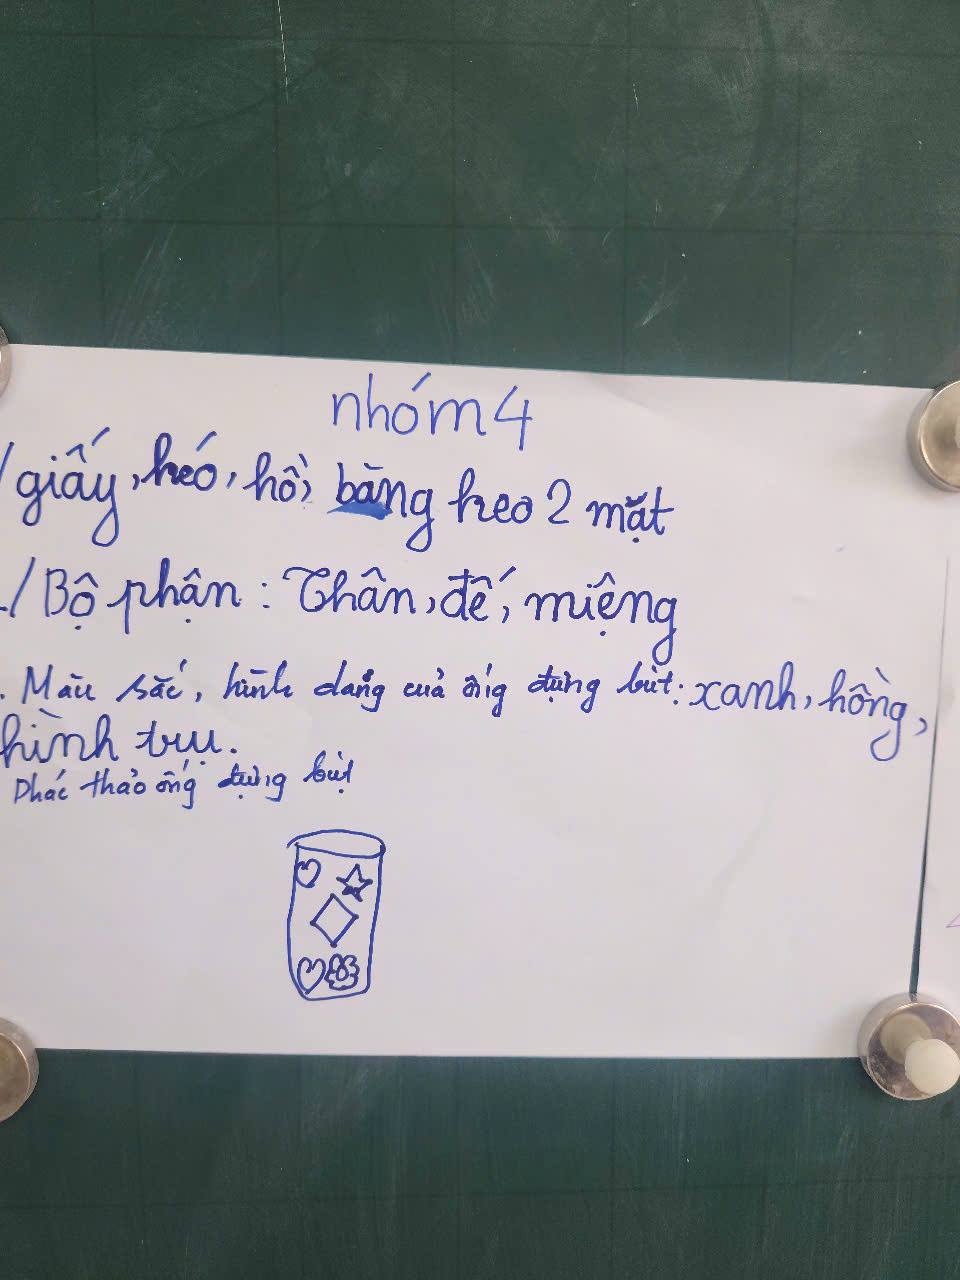 nhóm 4
/ giấy, kéo, hồ, băng keo 2 mặt
/ Bộ phận : Thân, đế, miệng
. Màu sắc, hình dạng của ống đựng bút: xanh, hồng,
hình trụ.
Phác thảo ống đựng bút